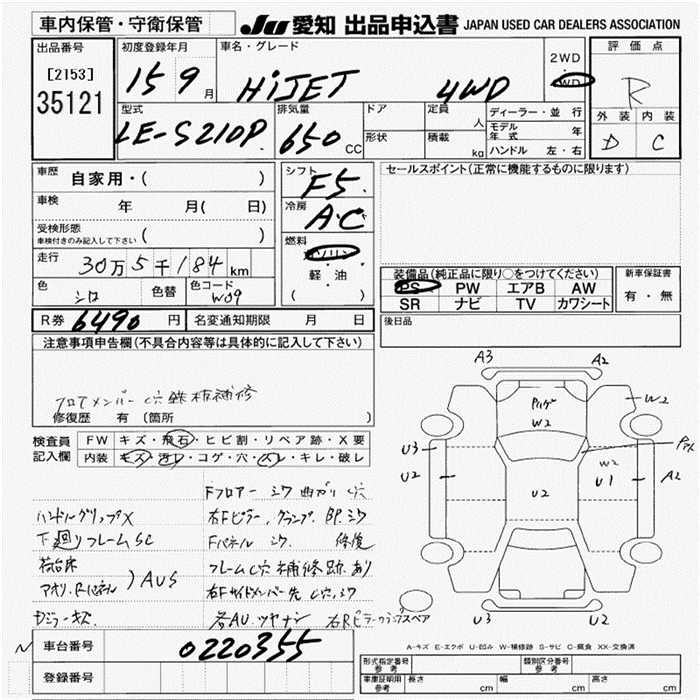 車内保管・守衛保管
JU 愛知 出品申込書 JAPAN USED CAR DEALERS ASSOCIATION
出品番号
[2153]
35121
初度登録年月
15 9月
車名・グレード
HiJET 4WD
2WD
・
4WD
評価点
R
外装 内装
D C
型式
LE-S210P
排気量
650 CC
ドア
形状
定員 人
積載 kg
ディーラー・並行
モデル年式 年
ハンドル 左・右
車歴 自家用・( )
車検 年 月( 日)
受検形態
車検付きのみ記入して下さい ( )
走行 30万5千184 km
色 シロ 色替 色コード W09
シフト
F5
冷房
A.C
燃料
ガソリン
・
軽・油
( )
セールスポイント(正常に機能するものに限ります)
装備品(純正品に限り○をつけてください)
PS PW エアB AW
SR ナビ TV カワシート
新車保証書
有・無
R券 6490 円 名変通知期限 月 日
後日品
注意事項申告欄(不具合内容等は具体的に記入して下さい)
フロアメンバー C穴 鉄板補修
修復歴 有 (箇所 )
検査員
記入欄
FW キズ・飛石・ヒビ割・リペア跡・X要
内装 キズ・汚レ・コゲ・穴・スレ・キレ・破レ
Fフロアー シワ 曲ガリ C穴
ハンドルグリップX
下廻リフレームSC
荷台床
アオリ、Rパネル ) AUS
右Fピラー、 BP.シワ
Fパネル シワ 修復
フレームC穴補修跡あり
右Fサイドメンバー先 C穴、シワ
A3
A2
W2
W2
U3
U2
U2
W2
U1
A2
U3
U2
スペア
A-キズ E-エクボ U-凹み W-補修跡 S-サビ C-腐食 XX-交換済
車台番号 0220355
登録番号
型式指定番号
参考
類別区分番号
参考
車庫証明用
参考
長さ cm 幅 cm 高さ cm